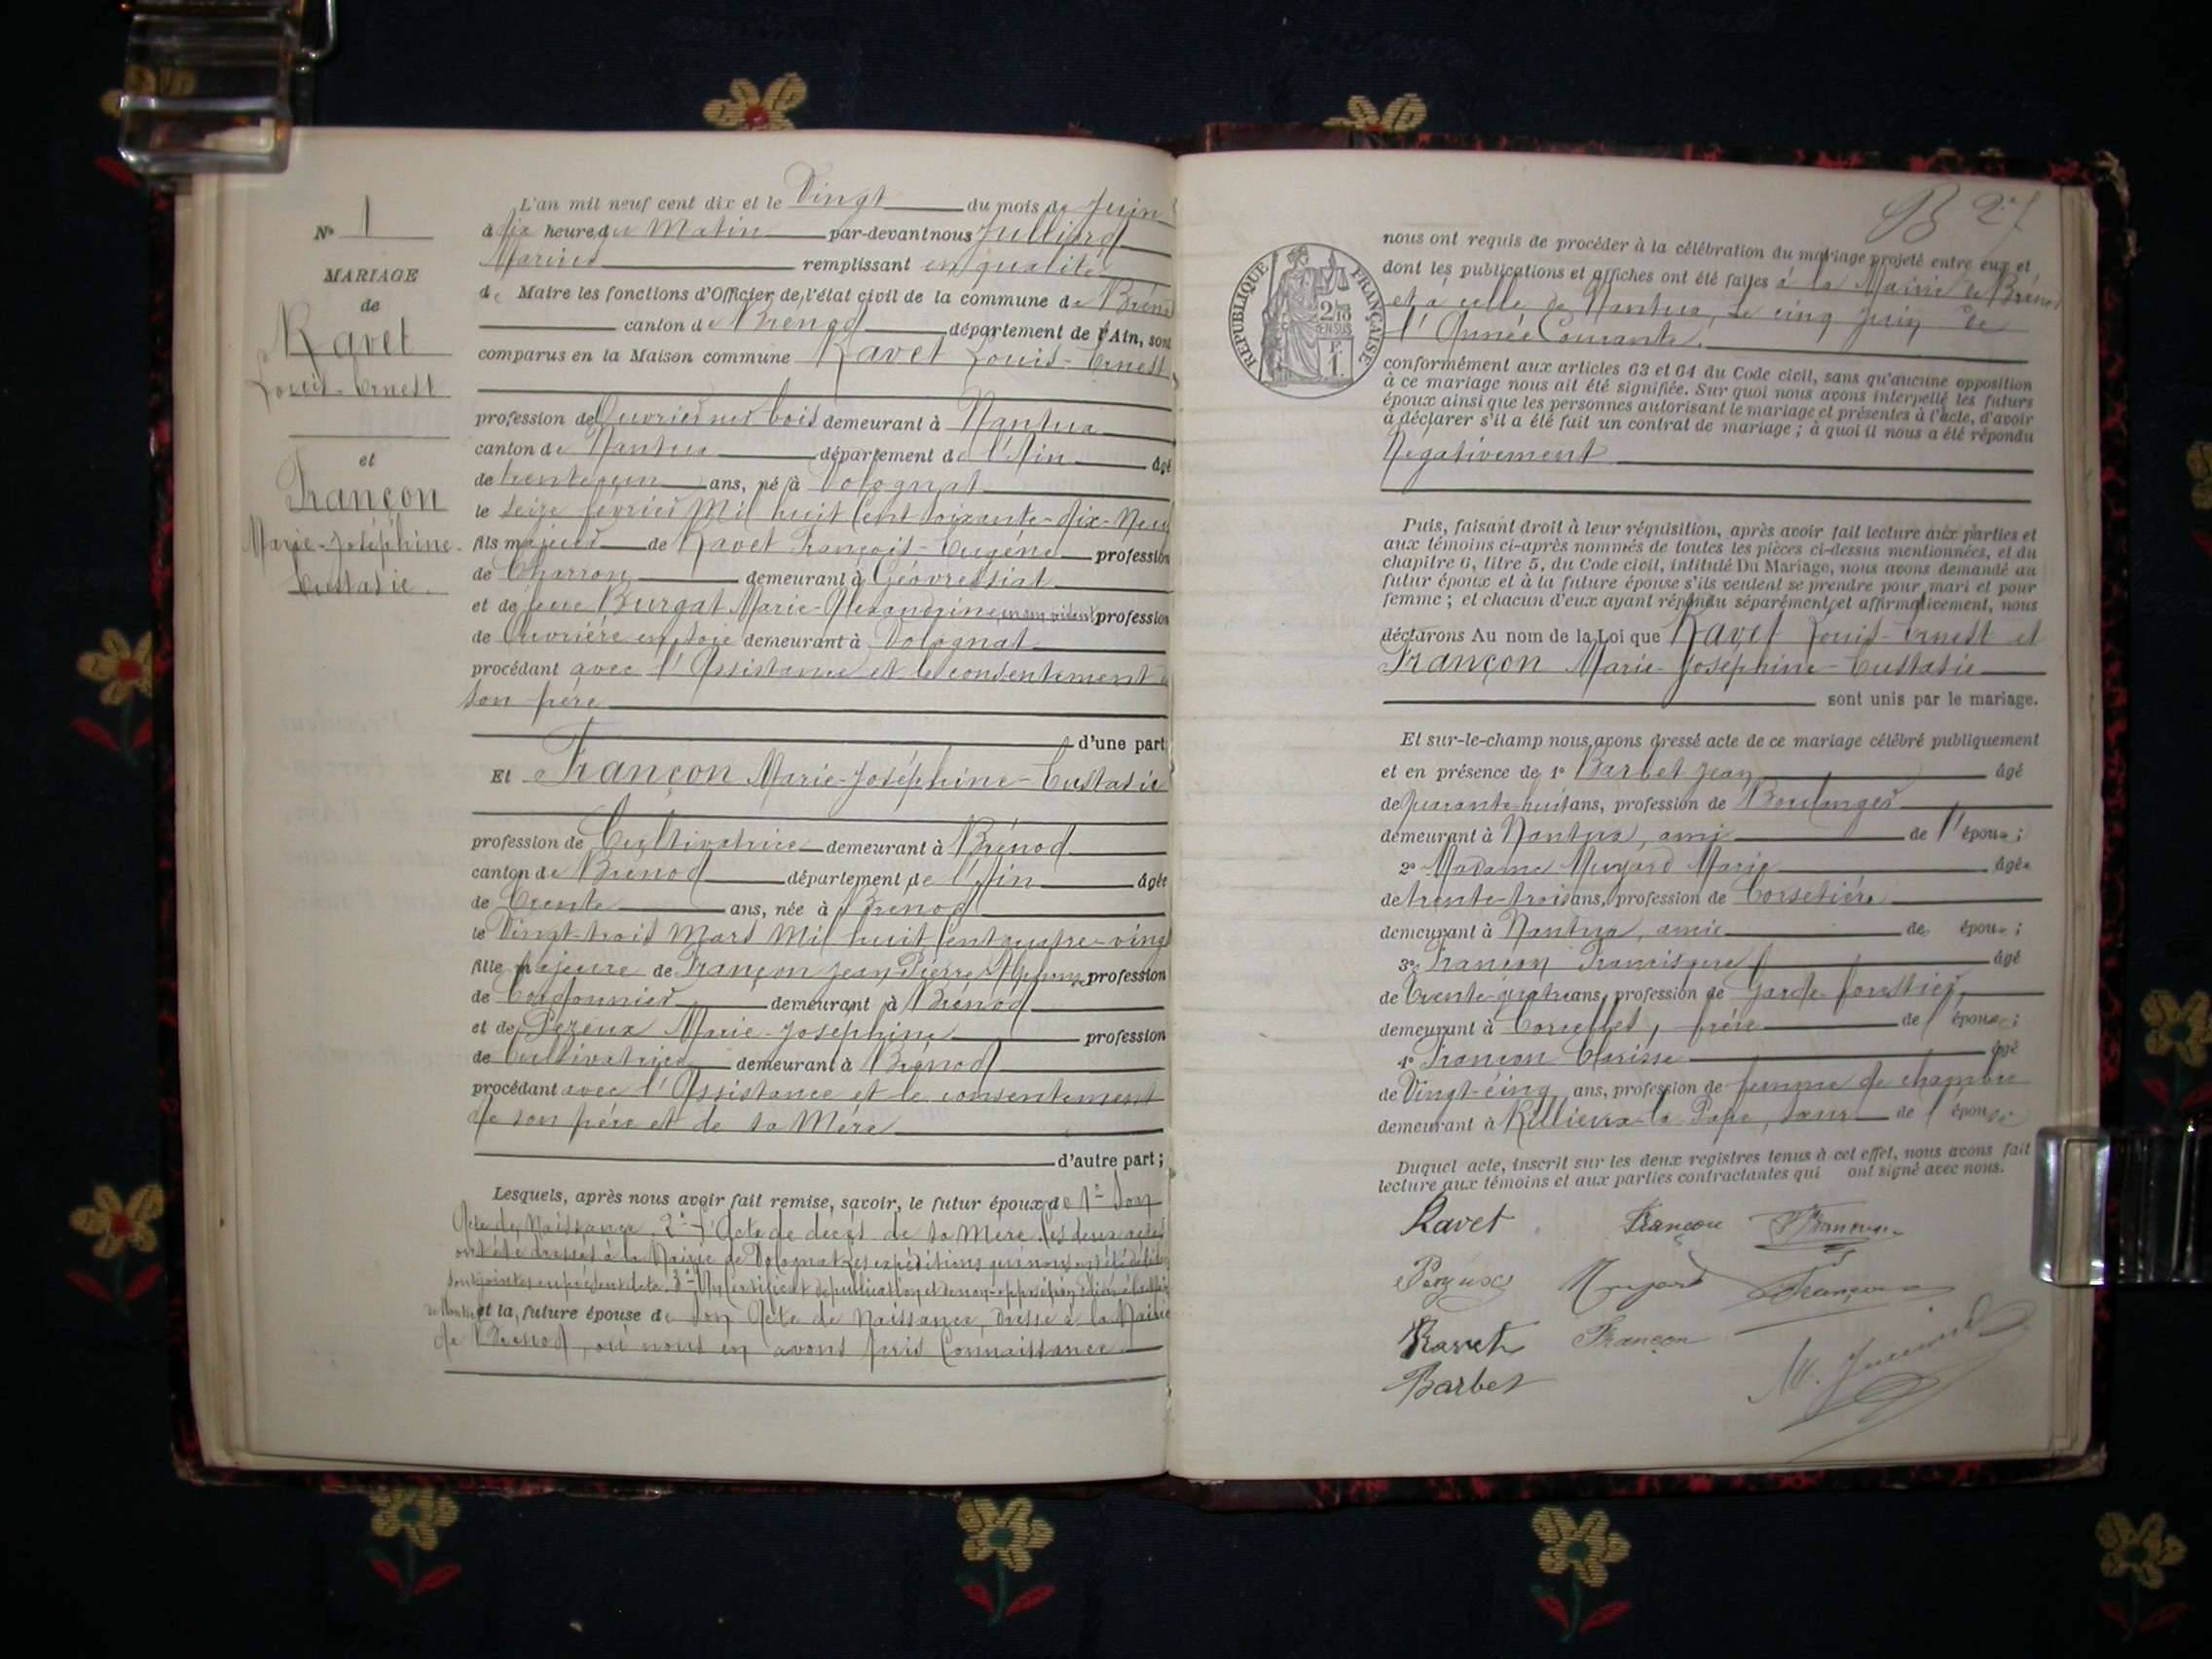 N° 1
MARIAGE
de
Ravet
Louis-Ernest
et
Françon
Marie-Joséphine-
Eustasie.
L'an mil neuf cent dix et le Vingt du mois de Juin
à dix heure du Matin par-devant nous Julliard
Marius remplissant en qualité
de Maire les fonctions d'Officier de l'état civil de la commune de Brénod
canton de Brénod département de l'Ain, sont
comparus en la Maison commune Ravet Louis-Ernest
profession de Ouvrier sur bois demeurant à Nantua
canton de Nantua département de l'Ain âgé
de trente un ans, né à Volognat
le Seize février Mil huit Cent Soixante-dix-Neuf
fils majeur de Ravet François-Eugène profession
de Charron demeurant à Géovressiat
et de feue Burgat Marie-Alexandrine en son vivant profession
de Ouvrière en soie demeurant à Volognat
procédant avec l'Assistance et le consentement de
son père
d'une part
Et Françon Marie-Joséphine-Eustasie
profession de Cultivatrice demeurant à Brénod
canton de Brénod département de l'Ain âgée
de Trente ans, née à Brénod
le Vingt-trois Mars Mil huit Cent quatre-vingt
fille majeure de Françon Jean-Pierre-Alphonse profession
de Cordonnier demeurant à Brénod
et de Pezeux Marie-Joséphine profession
de Cultivatrice demeurant à Brénod
procédant avec l'Assistance et le consentement
de son père et de sa Mère
d'autre part;
Lesquels, après nous avoir fait remise, savoir, le futur époux de 1° Son
Acte de Naissance, 2° l'Acte de décès de sa Mère. Ces deux actes
ont été dressés à la Mairie de Volognat. Les expéditions qui nous ont été délivrées
sont jointes au présent acte. 3° Un certificat de publication et de non-opposition
de Nantua et la future épouse de Son Acte de Naissance, dressé à la Mairie
de Brénod, où nous en avons pris Connaissance.
B 27
RÉPUBLIQUE FRANÇAISE
2/10 EN SUS
F. 1.
nous ont requis de procéder à la célébration du mariage projeté entre eux et
dont les publications et affiches ont été faites à la Mairie de Brénod
et à celle de Nantua, le cinq Juin de
l'Année Courante.
conformément aux articles 63 et 64 du Code civil, sans qu'aucune opposition
à ce mariage nous ait été signifiée. Sur quoi nous avons interpellé les futurs
époux ainsi que les personnes autorisant le mariage et présentes à l'acte, d'avoir
à déclarer s'il a été fait un contrat de mariage; à quoi il nous a été répondu
Négativement
Puis, faisant droit à leur réquisition, après avoir fait lecture aux parties et
aux témoins ci-après nommés de toutes les pièces ci-dessus mentionnées, et du
chapitre 6, titre 5, du Code civil, intitulé Du Mariage, nous avons demandé au
futur époux et à la future épouse s'ils veulent se prendre pour mari et pour
femme; et chacun d'eux ayant répondu séparément et affirmativement, nous
déclarons Au nom de la Loi que Ravet Louis-Ernest et
Françon Marie-Joséphine-Eustasie
sont unis par le mariage.
Et sur-le-champ nous avons dressé acte de ce mariage célébré publiquement
et en présence de 1° Barbet Jean âgé
de quarante-huit ans, profession de Boulanger
demeurant à Nantua, ami de l'époux;
2° Madame Mugard Marie âgée
de trente-trois ans, profession de Corsetière
demeurant à Nantua, amie de épou ;
3° Françon Francisque âgé
de Trente-quatre ans, profession de Garde-forestier,
demeurant à Corcelles, frère de l'épouse;
4° Françon Clarisse âgé
de Vingt-cinq ans, profession de femme de chambre
demeurant à Rillieux-la-Pape, sœur de l'épouse
Duquel acte, inscrit sur les deux registres tenus à cet effet, nous avons fait
lecture aux témoins et aux parties contractantes qui ont signé avec nous.
Ravet Françon Françon
Pezeux Mugard Françon
Ravet Françon
Barbet